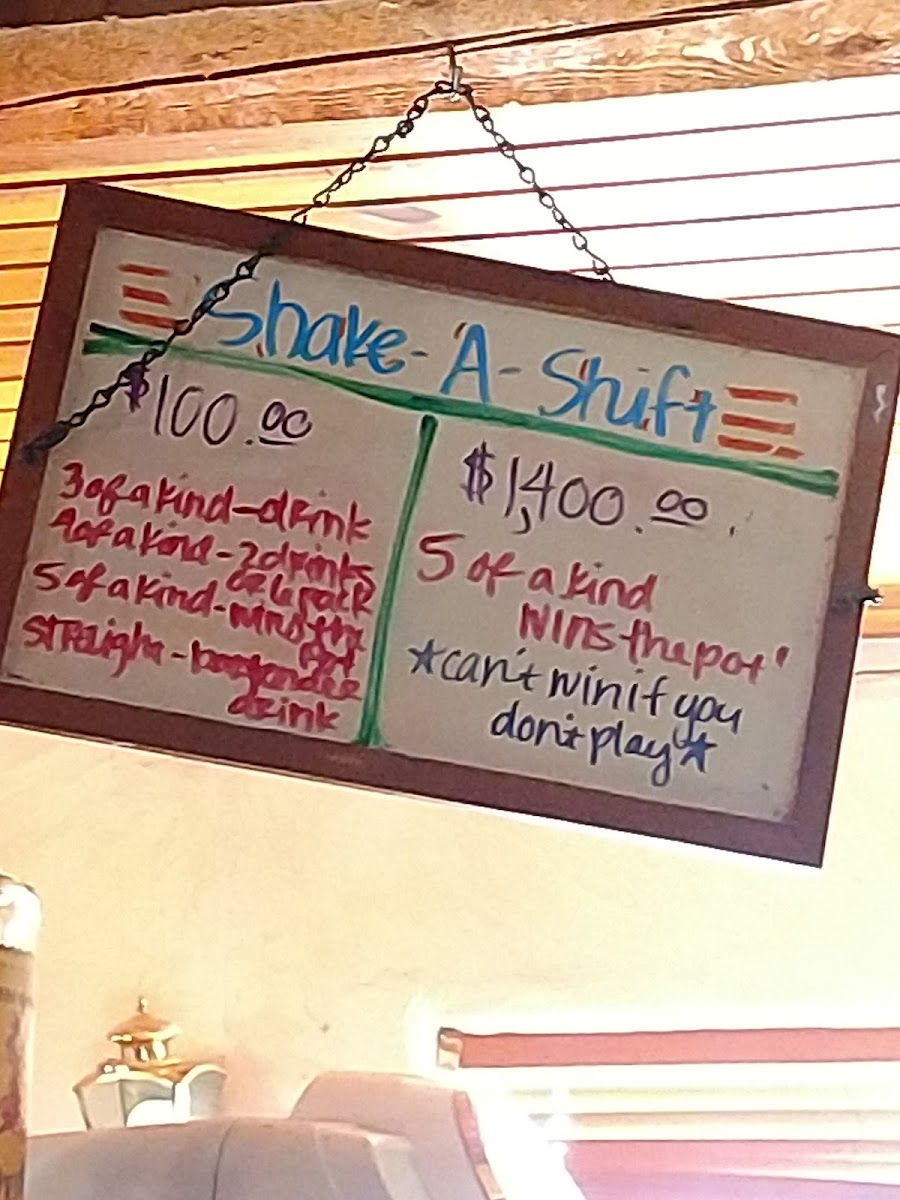 Shake-A-Shift
$100.00
3 of a kind-drink
4 of a kind-2 drinks
or 6 pack
5 of a kind-wins the
pot
Straight-bartender
drink
$1,400.00
5 of a kind
wins the pot
*can't win if you
don't play*